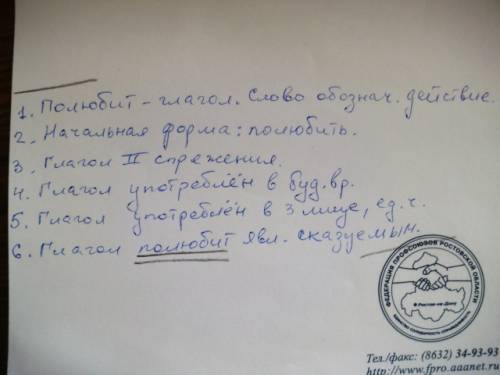 1. Полюбит – глагол. Слово обознач. действие.
2. Начальная форма: полюбить.
3. Глагол II спряжения.
4. Глагол употреблён в буд. вр.
5. Глагол употреблён в 3 лице, ед. ч.
6. Глагол полюбит явл. сказуемым.
ФЕДЕРАЦИЯ ПРОФСОЮЗОВ РОСТОВСКОЙ ОБЛАСТИ
Ростов-на-Дону
Тел./факс: (8632) 34-93-93
http://www.fpro.aaanet.ru